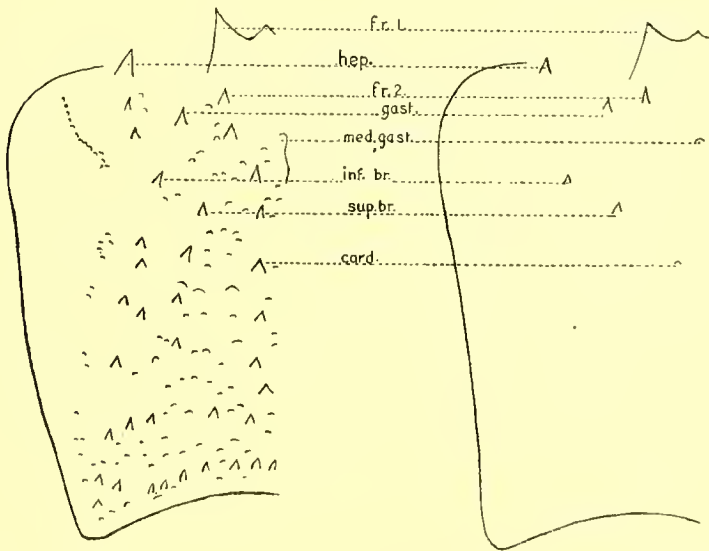 fr. 1.
hep.
fr. 2.
gast.
med. gast.
inf. br.
sup. br.
card.